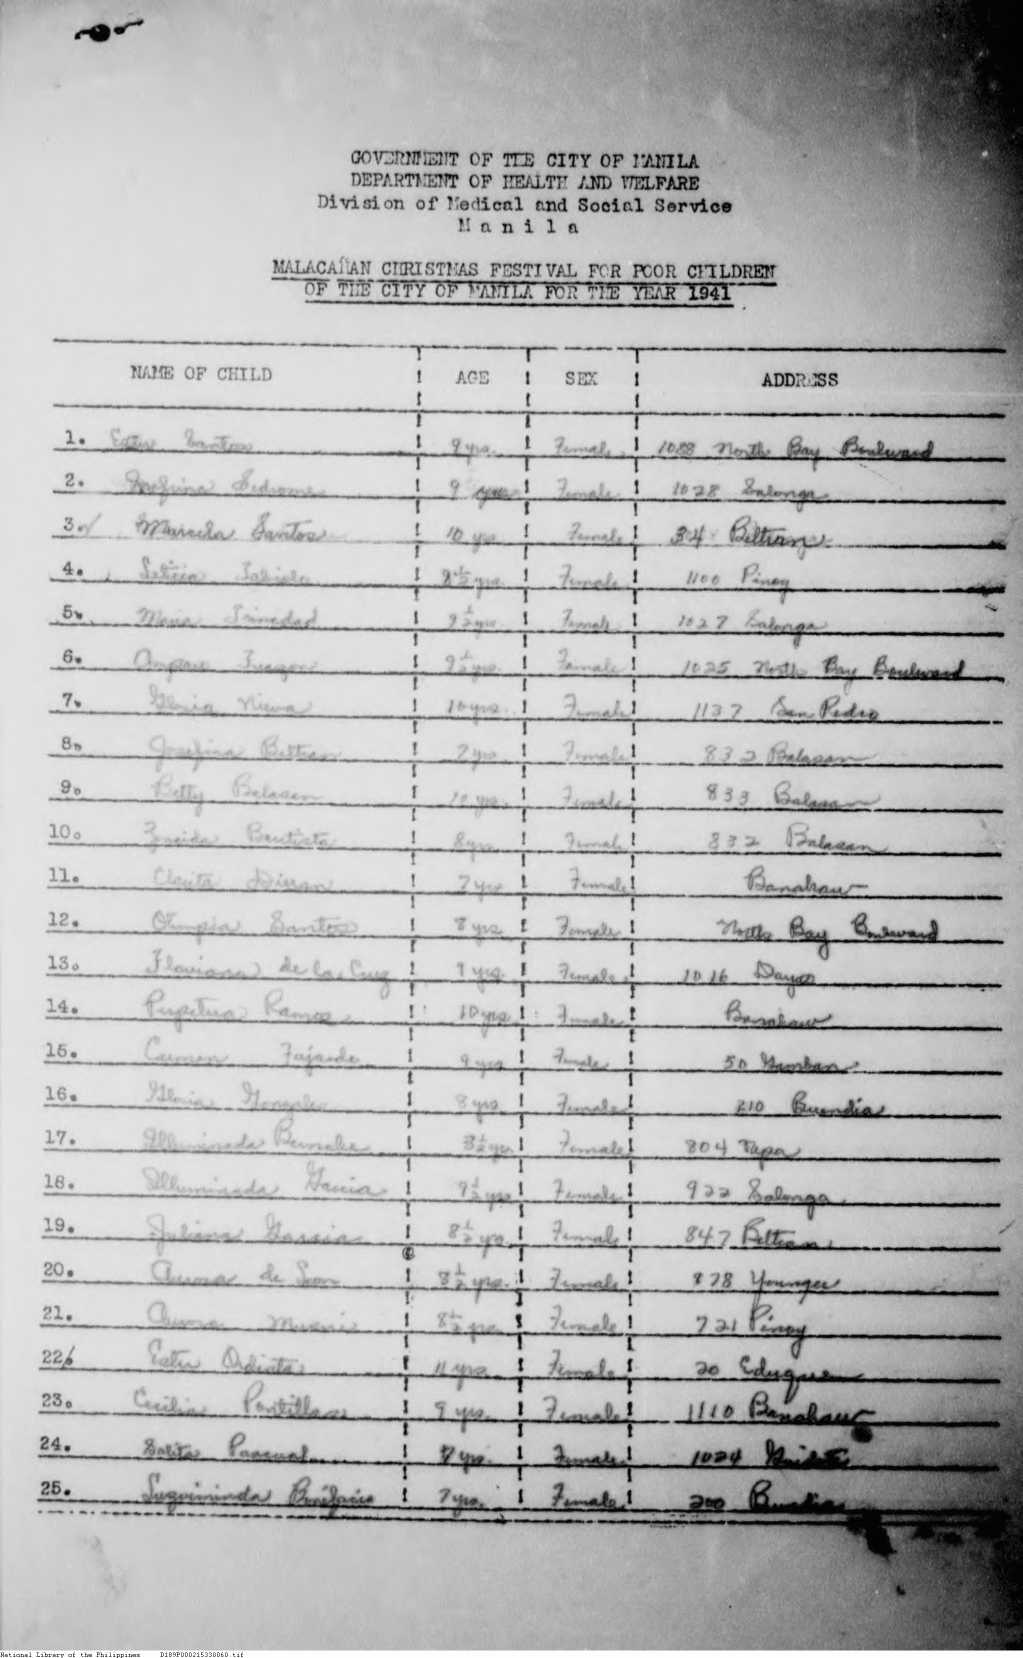 GOVERNMENT OF THE CITY OF MANILA
DEPARTMENT OF HEALTH AND WELFARE
Division of Medical and Social Service
M a n i l a
MALACAÑAN CHRISTMAS FESTIVAL FOR POOR CHILDREN
OF THE CITY OF MANILA FOR THE YEAR 1941
NAME OF CHILD AGE SEX ADDRESS
1. Ester Santos 9 yrs. Female 1088 North Bay Boulevard
2. Josefina 9 yrs Female 1028 Salonga
3. Marcela Santos 10 yrs Female 34 Beltran
4. Leticia 8½ yrs. Female 1100 Pinoy
5. Maria Trinidad 9½ yrs. Female 1027 Salonga
6. Amparo Tuazon 9½ yrs. Female 1025 North Bay Boulevard
7. Gloria Nieva 10 yrs. Female 1137 San Pedro
8. Josefina Beltran 7 yrs. Female 832 Balasan
9. Betty Balasan 10 yrs. Female 833 Balasan
10. Zenaida Bautista 8 yrs Female 832 Balasan
11. Clarita 7 yrs Female Banahaw
12. Olimpia Santos 8 yrs Female North Bay Boulevard
13. Flaviana de la Cruz 9 yrs. Female 1016 Dayao
14. Perpetua Ramos 10 yrs Female Banahaw
15. Carmen Fajardo 9 yrs Female 50
16. Gloria Gonzales 8 yrs Female 210 Buendia
17. Illuminada 8½ yrs. Female 804 Tapa
18. Illuminada Garcia 9½ yrs Female 922 Salonga
19. Juliana Garcia 8½ yrs. Female 847 Beltran
20. Aurora de Leon 8½ yrs. Female 878 Younger
21. Aurora 8½ yrs Female 721 Pinoy
22. Ester 11 yrs Female 20 Eduque
23. Cecilia Portillas 9 yrs. Female 1110 Banahaw
24. Pascual 7 yrs. Female 1024
25. Luzviminda Bonifacio 7 yrs. Female 200
National Library of the Philippines D189P000215338060.tif